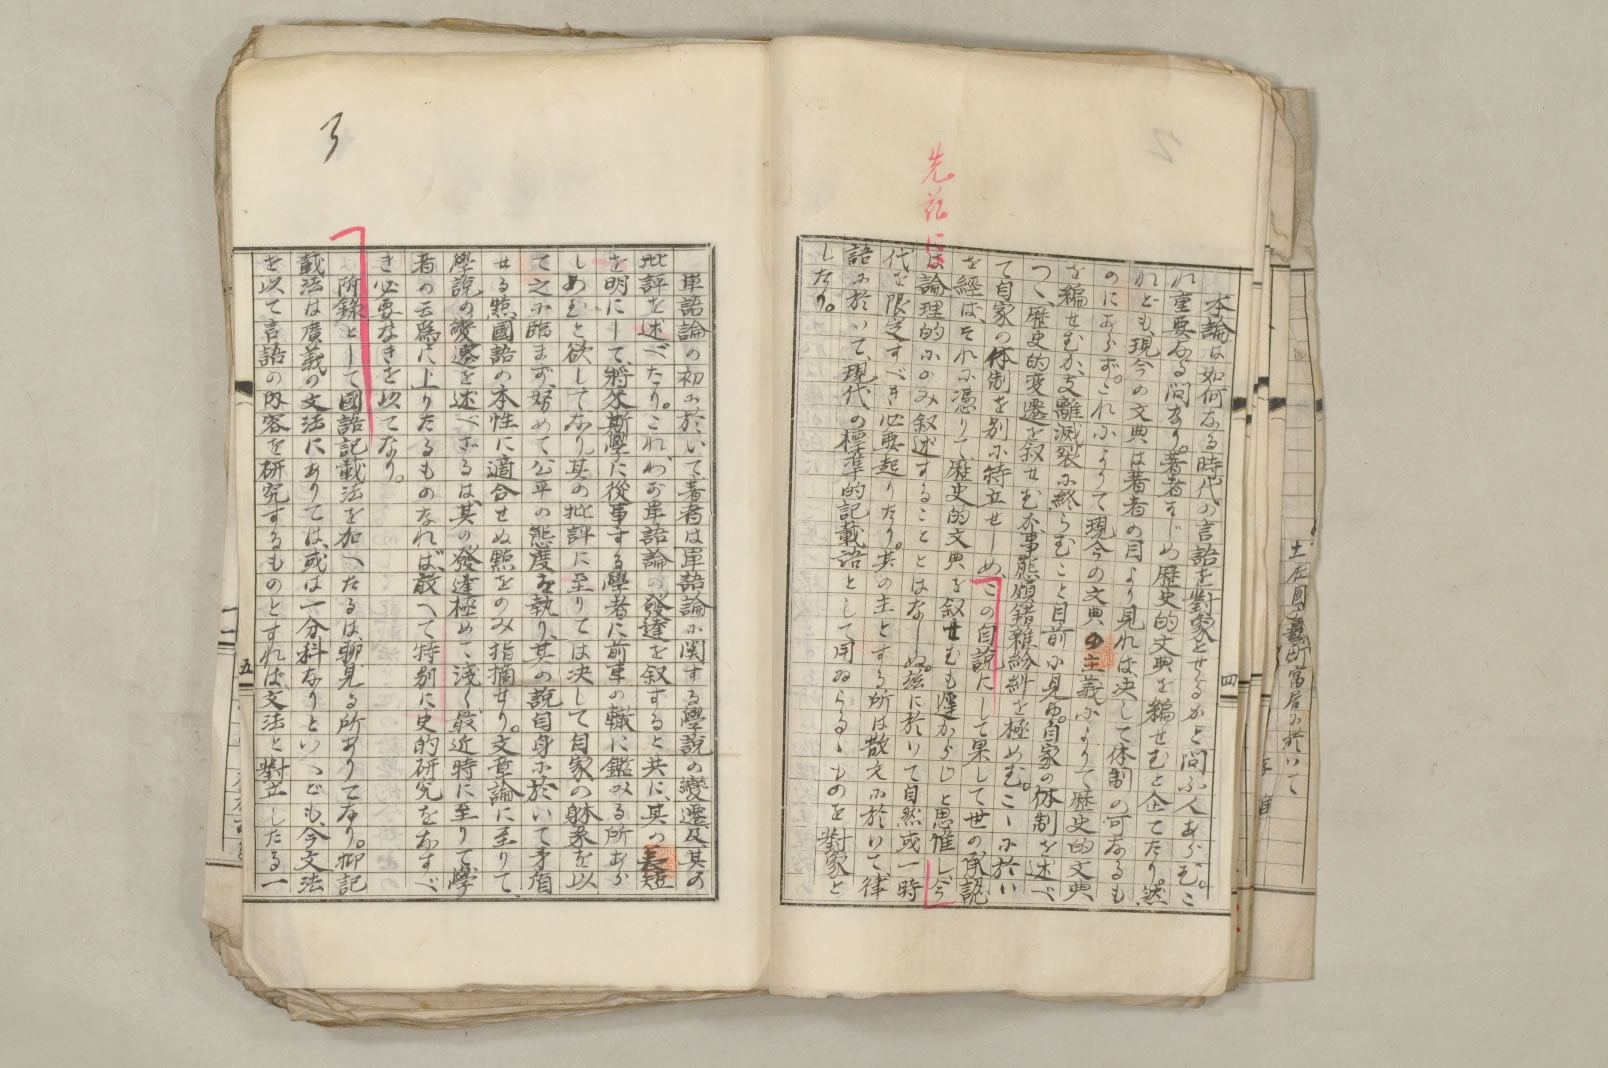 本論は如何なる時代の言語を對象とせるかと問ふ人あらむ。こ
れ重要なる問なり。著者はじめ歴史的文典を編せむと企てたり。然
れども、現今の文典は著者の目より見れば決して体制の可なるも
のにあらず。これによりて現今の文典の主義によりて歴史的文典
を編せむか、支離滅裂に終らむこと目前に見ゆ。自家の体制を述べ
つつ、歴史的変遷を叙せむ
て自家の体制を別に特立せしめ、この自説にして果して世の承認
を經ば、それに憑りて歴史的文典を叙せむも遅からじと思惟し、今
は論理的にのみ叙述することとはなしぬ。茲に於いて自然或一時
代を限定すべき必要起りたり。其の主とする所は散文に於いて律
語に於いて、現代の標準的記載語として用ゐらるゝものを對象と
したり。
先茲に
四
單語論の初に於いて著者は單語論に関する學説の變遷及其の
批評を述べたり。これわが單語論の發達を叙すると共に、其の長短
を明にして、將来斯學に從事する學者に前車の轍に鑑みる所あら
しめむと欲してなり。其の批評に至りては決して自家の躰系を以
て之に臨まず、努めて公平の態度を執り、其の説自身に於いて矛盾
せる點國語の本性に適合せぬ點をのみ指摘せり。文章論に至りて、
學説の變遷を述べざるは、其の發達極めて淺く最近時に至りて學
者の云爲に上りたるものなれば、敢へて特別に史的研究をなすべ
き必要なきを以てなり。
附錄として國語記載法を加へたるは、聊見る所ありてなり。抑記
載法は廣義の文法にありては、或は一分科なりといへども、今文法
を以て言語の内容を研究するものとすれば文法と對立したる一
五
3
2